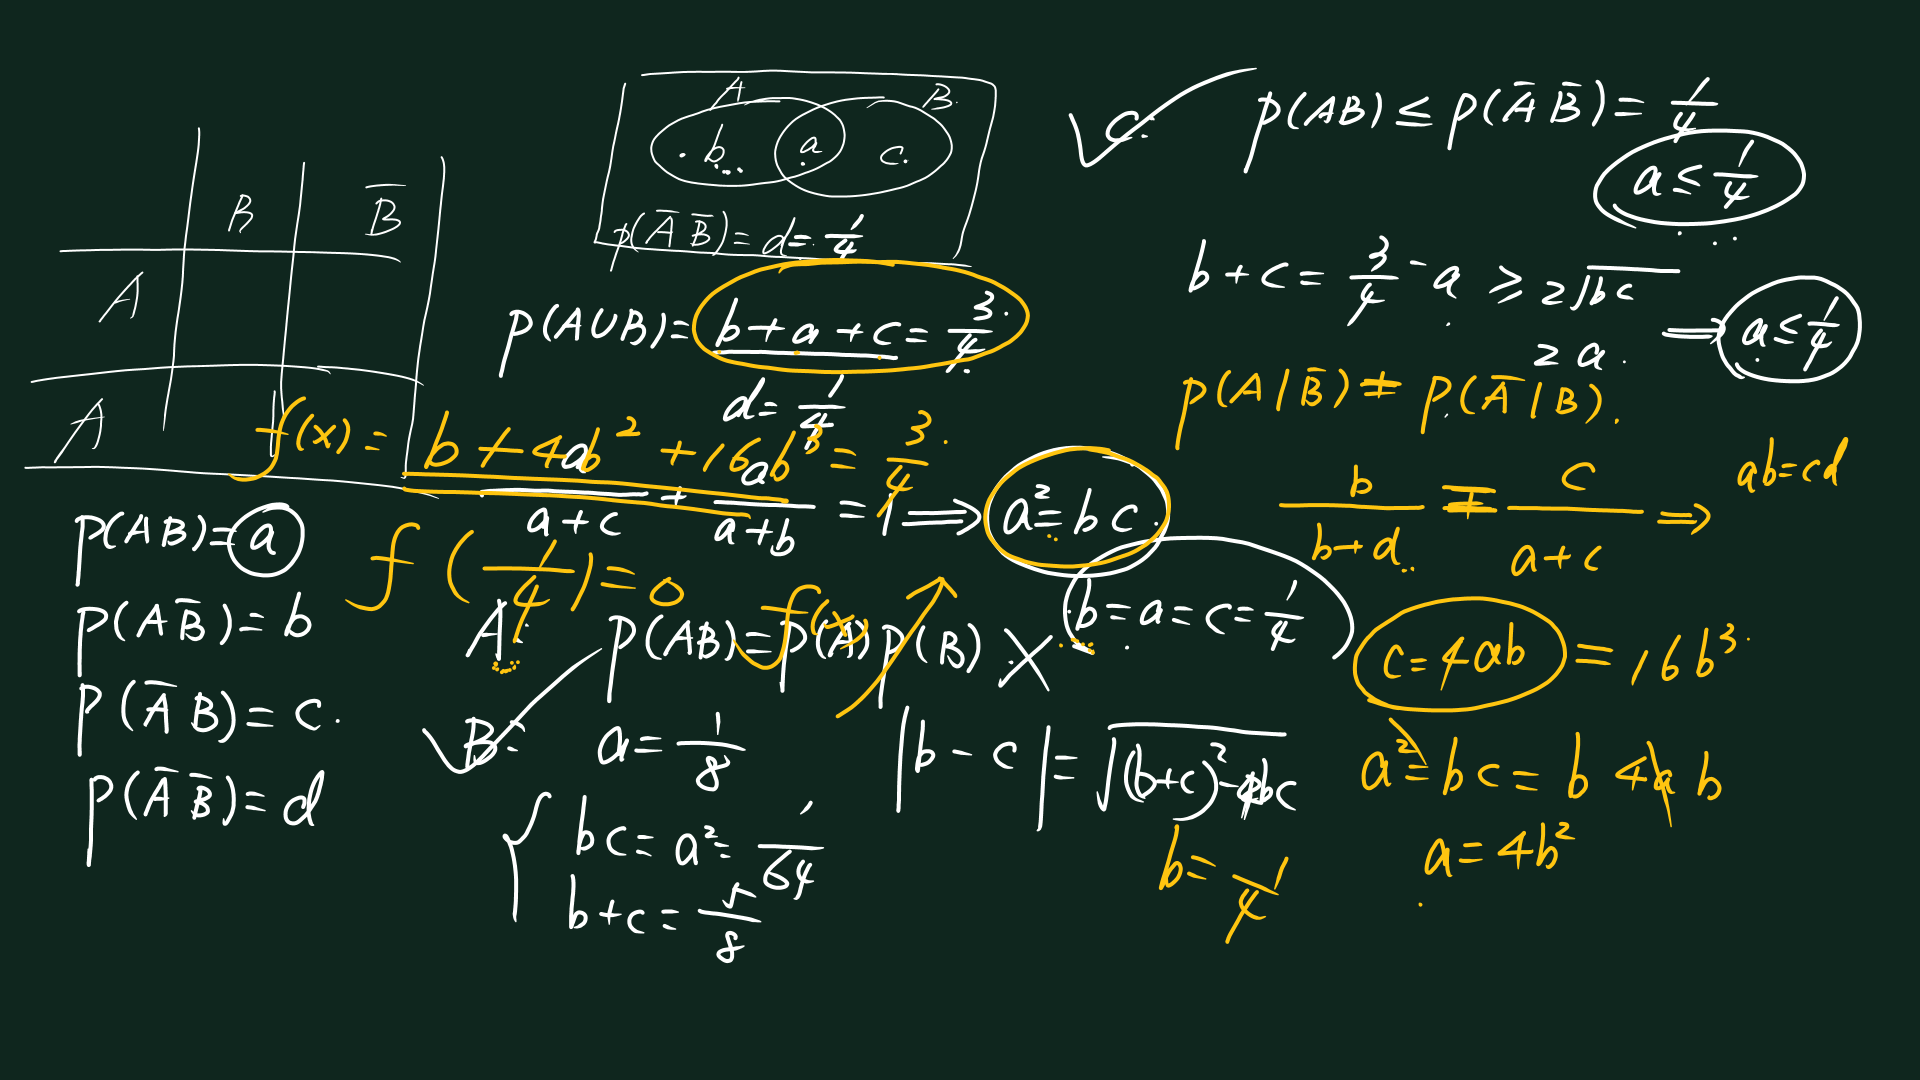 B B̅
A
A̅
A B
b a c
P(A̅ B̅) = d = 1/4
P(A∪B) = b + a + c = 3/4
d = 1/4
f(x) = b + 4b² + 16b³ = 3/4
a/(a+c) + a/(a+b) = 1 ⇒ a² = bc
f(1/4) = 0
f(x)
b = a = c = 1/4
P(AB) = a
P(AB̅) = b
P(A̅B) = c
P(A̅ B̅) = d
A. P(AB) = P(A)P(B) ×
B. a = 1/8
bc = a² = 1/64
b + c = 5/8
|b - c| = √((b+c)² - 4bc)
C. P(AB) ≤ P(A̅ B̅) = 1/4
a ≤ 1/4
b + c = 3/4 - a ≥ 2√bc ⇒ a ≤ 1/4
2a
P(A|B̅) = P(A̅|B)
b/(b+d) = c/(a+c) ⇒ ab = cd
c = 4ab = 16b³
a² = bc = b 4a b
a = 4b²
b = 1/4